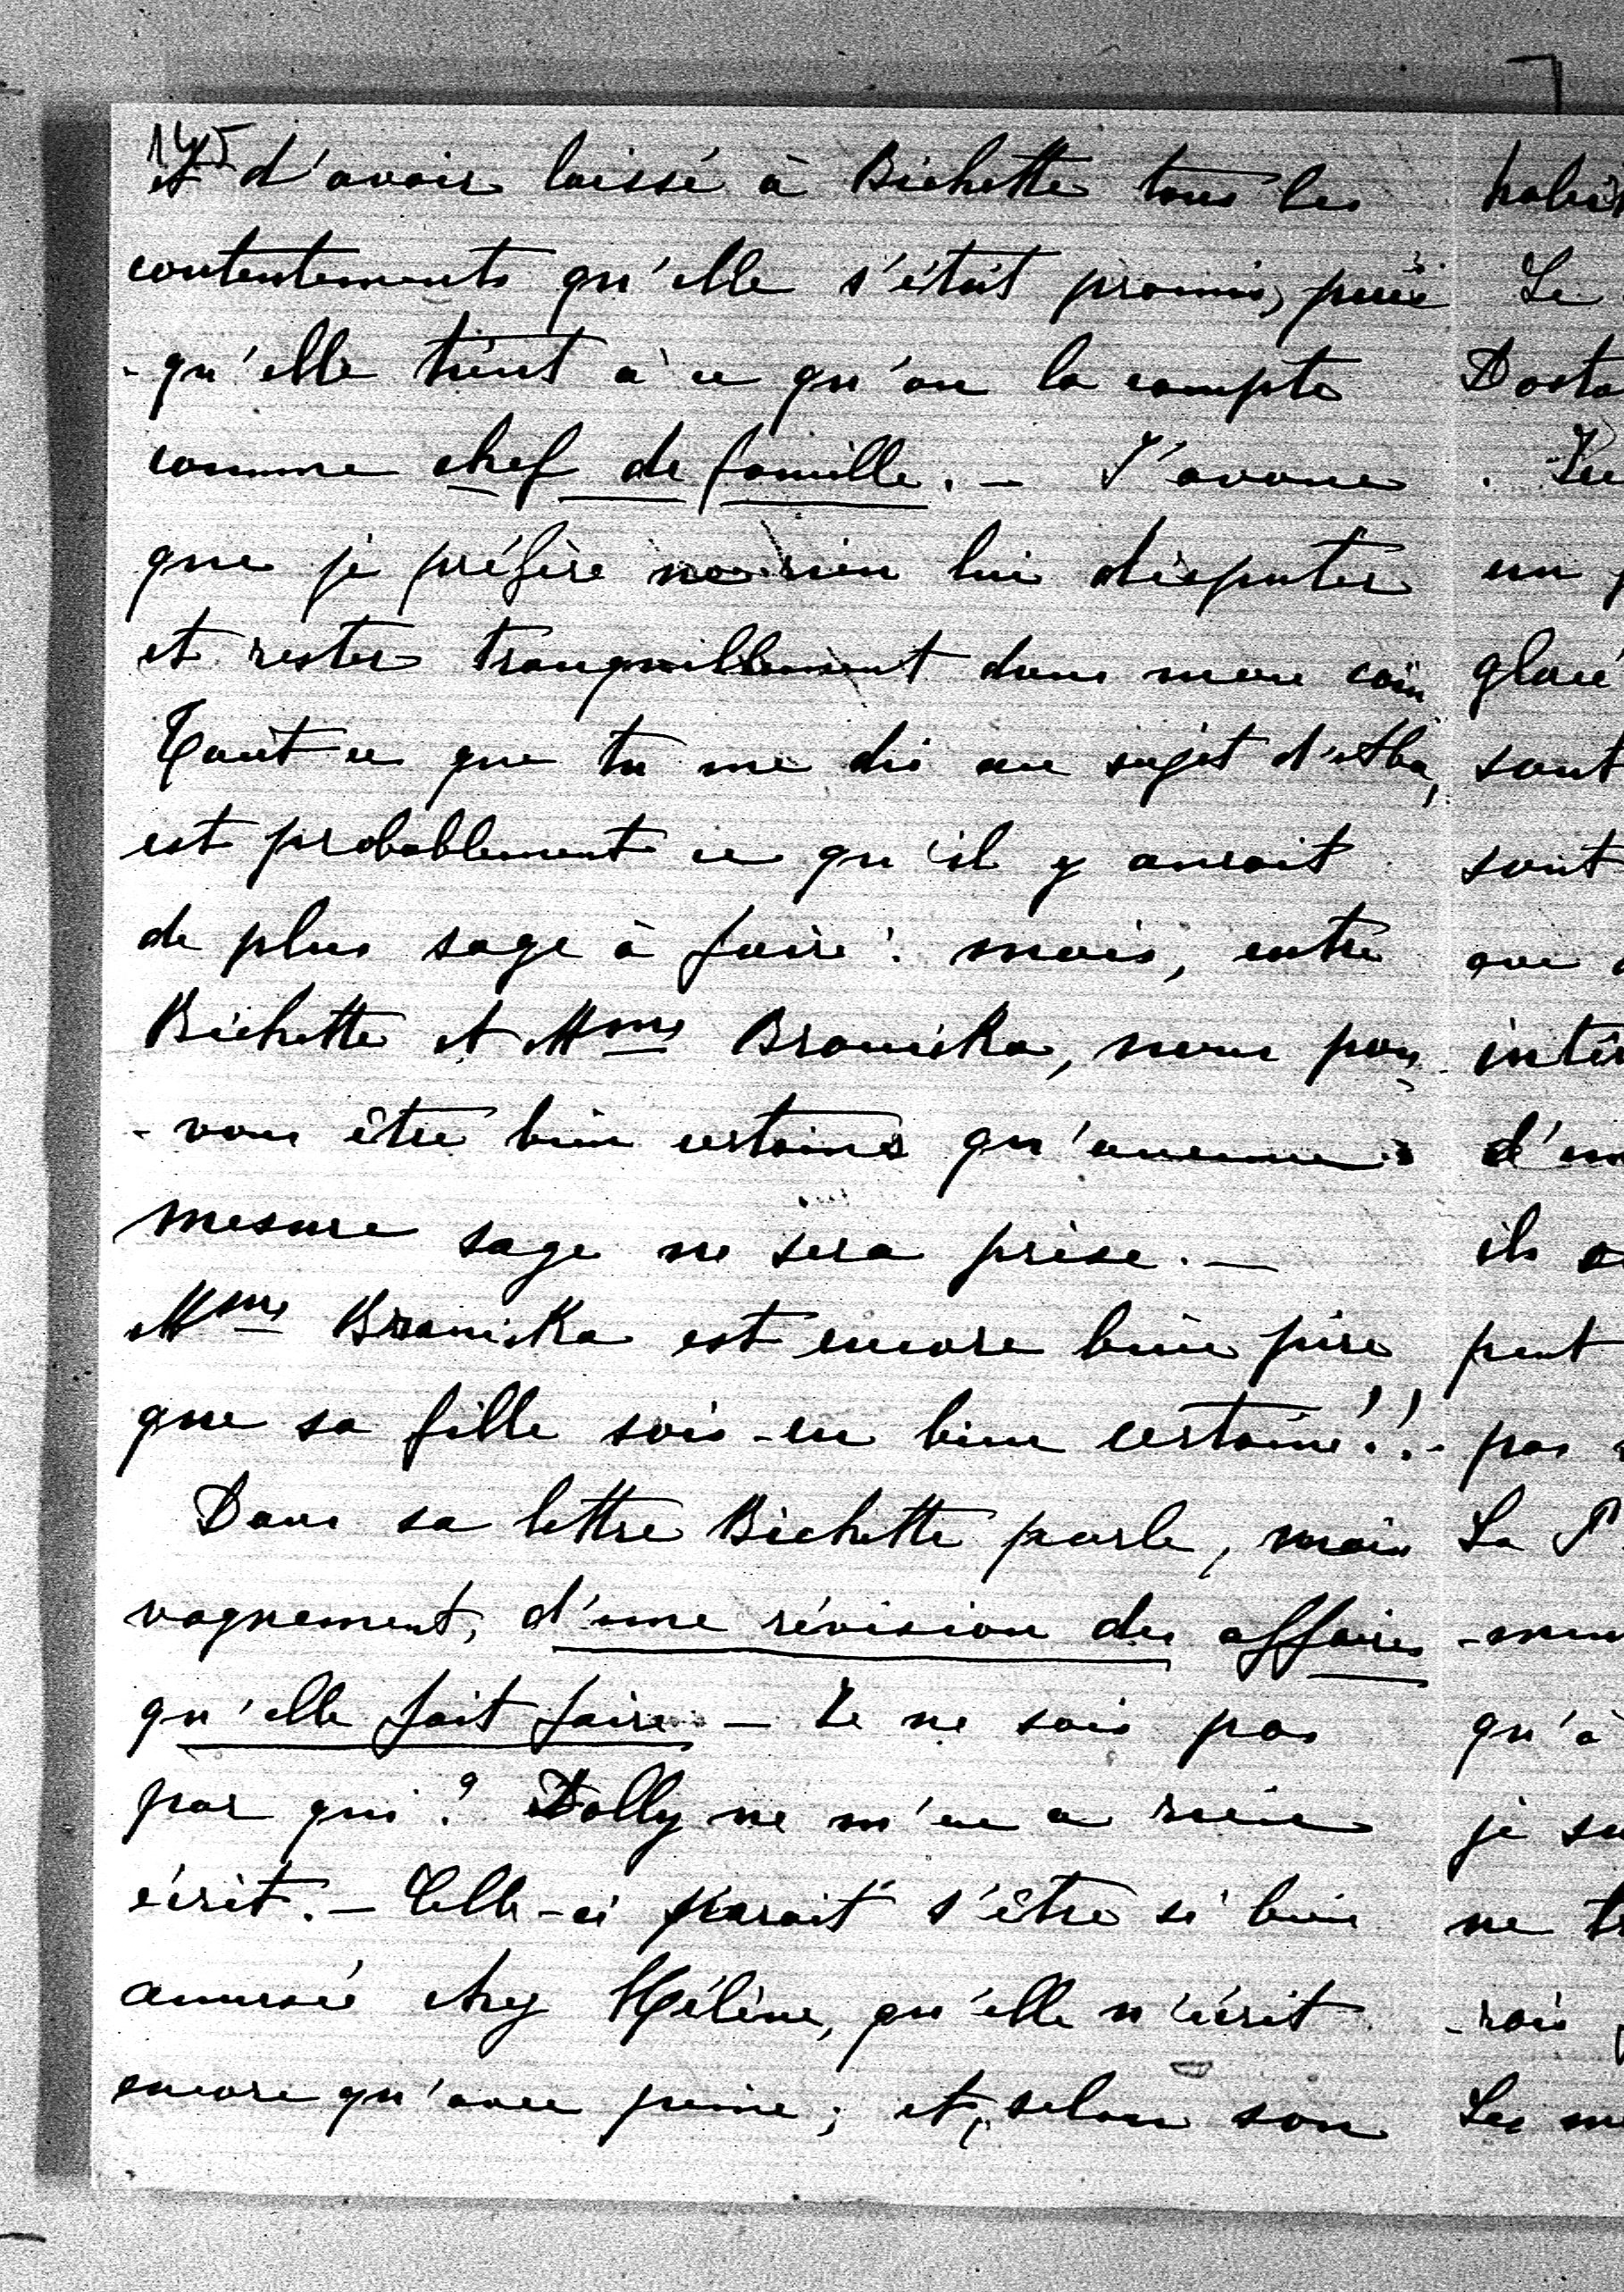 145
et d'avoir laissé à Bichette tous les
contentements qu'elle s'était promis, puis
-qu'elle tient à ce qu'on la compte
comme chef de famille. — J'avoue
que je préfère ne rien lui disputer
et rester tranquillement dans mon coin
Tout ce que tu me dis au sujet d'Aba,
est probablement ce qu'il y aurait
de plus sage à faire: mais, entre
Bichette et Mme Branicka, nous pou
-vons être bien certains qu'aucune
mesure sage ne sera prise. —
Mme Branicka est encore bien pire
que sa fille sois-en bien certaine!! -
Dans sa lettre Bichette parle, mais
vaguement, d'une révision des affaires
qu'elle fait faire — Je ne sais pas
par qui? Dolly ne m'en a rien
écrit. — Celle-ci paraît s'être si bien
amusée chez Hélène, qu'elle n'écrit
encore qu'avec peine; et, selon son
Le
sont
sont
un
ils
peut
pas
La P
qu'à
je
ne
Les